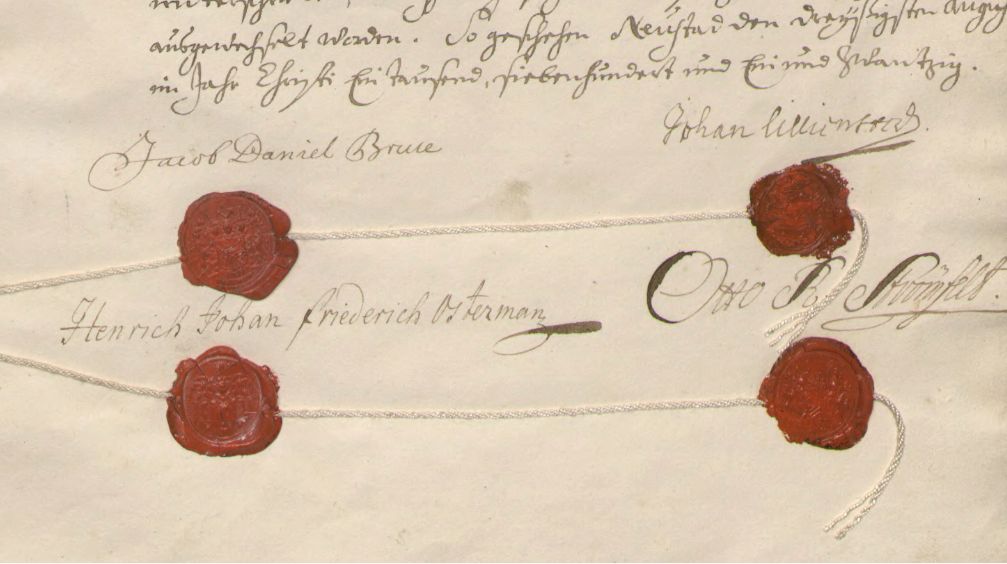 ausgewechselt worden. So geschehen Neustad den dreyßigsten Augu
im Jahr Christi Ein tausend, siebenhundert und Ein und Zwantzig.
Johan Lillienstedt.
Jacob Daniel Bruce
Otto R Strömfelt.
Henrich Johan friederich Osterman